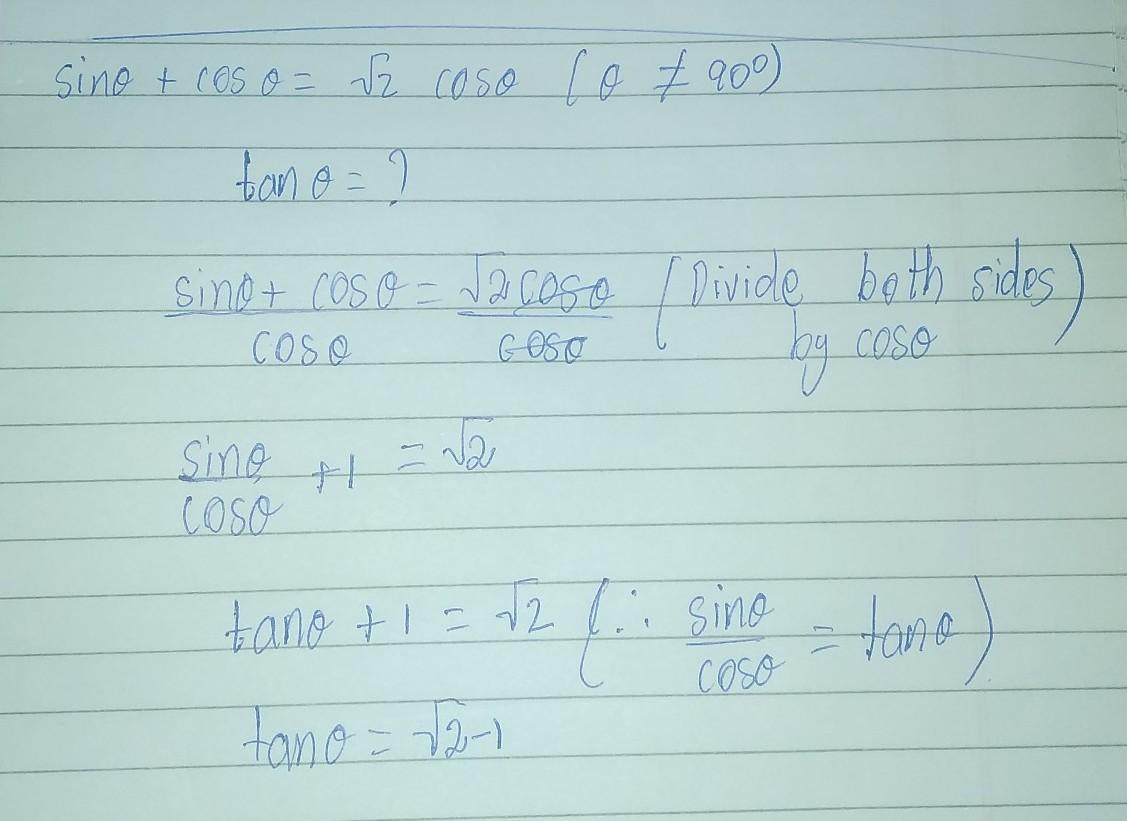 sinθ + cosθ = √2 cosθ (θ ≠ 90°)
tanθ = ?
(sinθ + cosθ)/cosθ = √2cosθ/cosθ (Divide both sides by cosθ)
sinθ/cosθ + 1 = √2
tanθ + 1 = √2 (∴ sinθ/cosθ = tanθ)
tanθ = √2-1